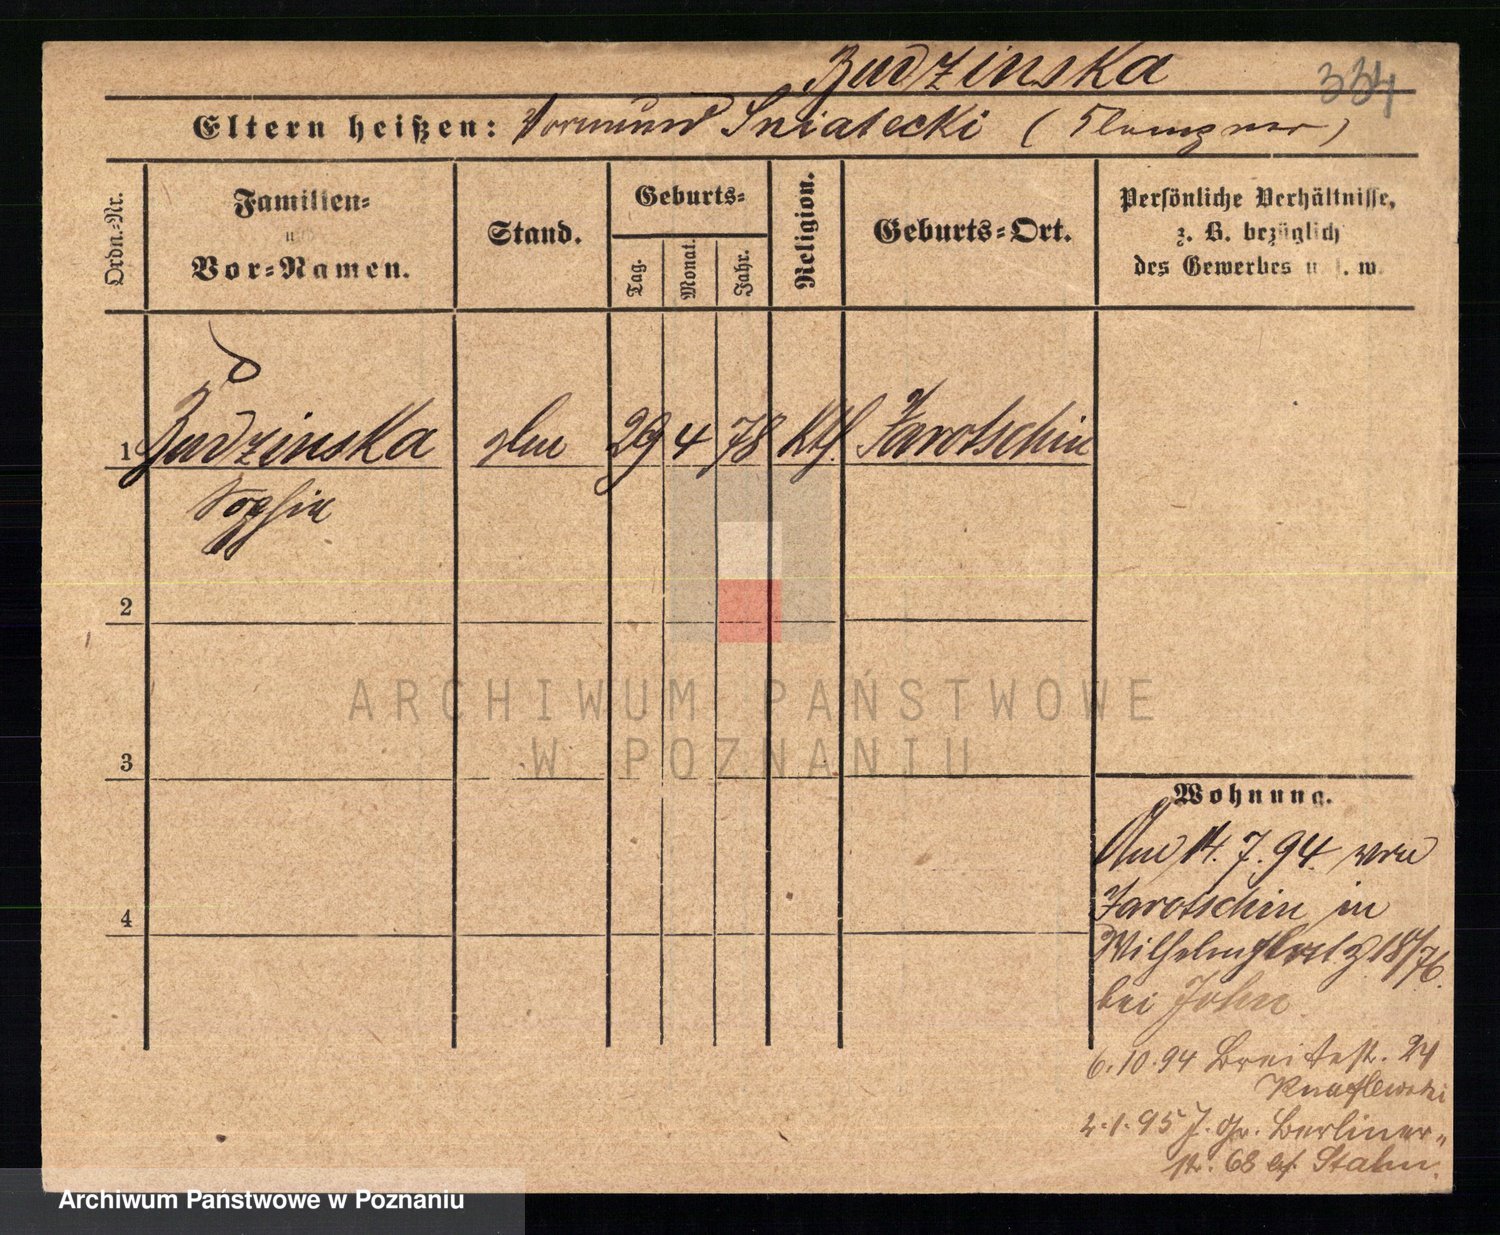 Budzinska
334
Eltern heißen: Vormund Sniatecki (Klempner)
Ordn.-Nr.
Familien-
und
Vor-Namen.
Stand.
Geburts-
Tag.
Monat.
Jahr.
Religion.
Geburts-Ort.
Persönliche Verhältnisse,
z. B. bezüglich
des Gewerbes u. s. w.
1 Budzinska 29 4 78 Kth. Jarotschin
Sophie
2
3
4
Wohnung.
Am 14. 7. 94. von
Jarotschin in
Wilhelmsplatz 18/76.
bei John
6.10.94 Breitestr. 24
2.1.95 J. Gr. Berliner-
str. 68 bei Stahn.
ARCHIWUM PAŃSTWOWE
W POZNANIU
Archiwum Państwowe w Poznaniu